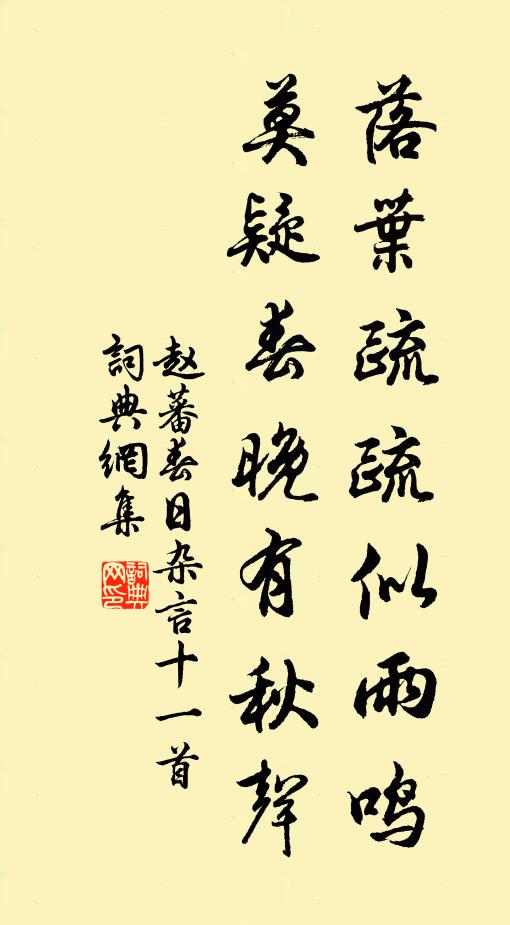 落葉疏疏似雨鳴
莫疑春晚有秋聲
赵蕃春日杂言十一首
詞典網集
詞典网印